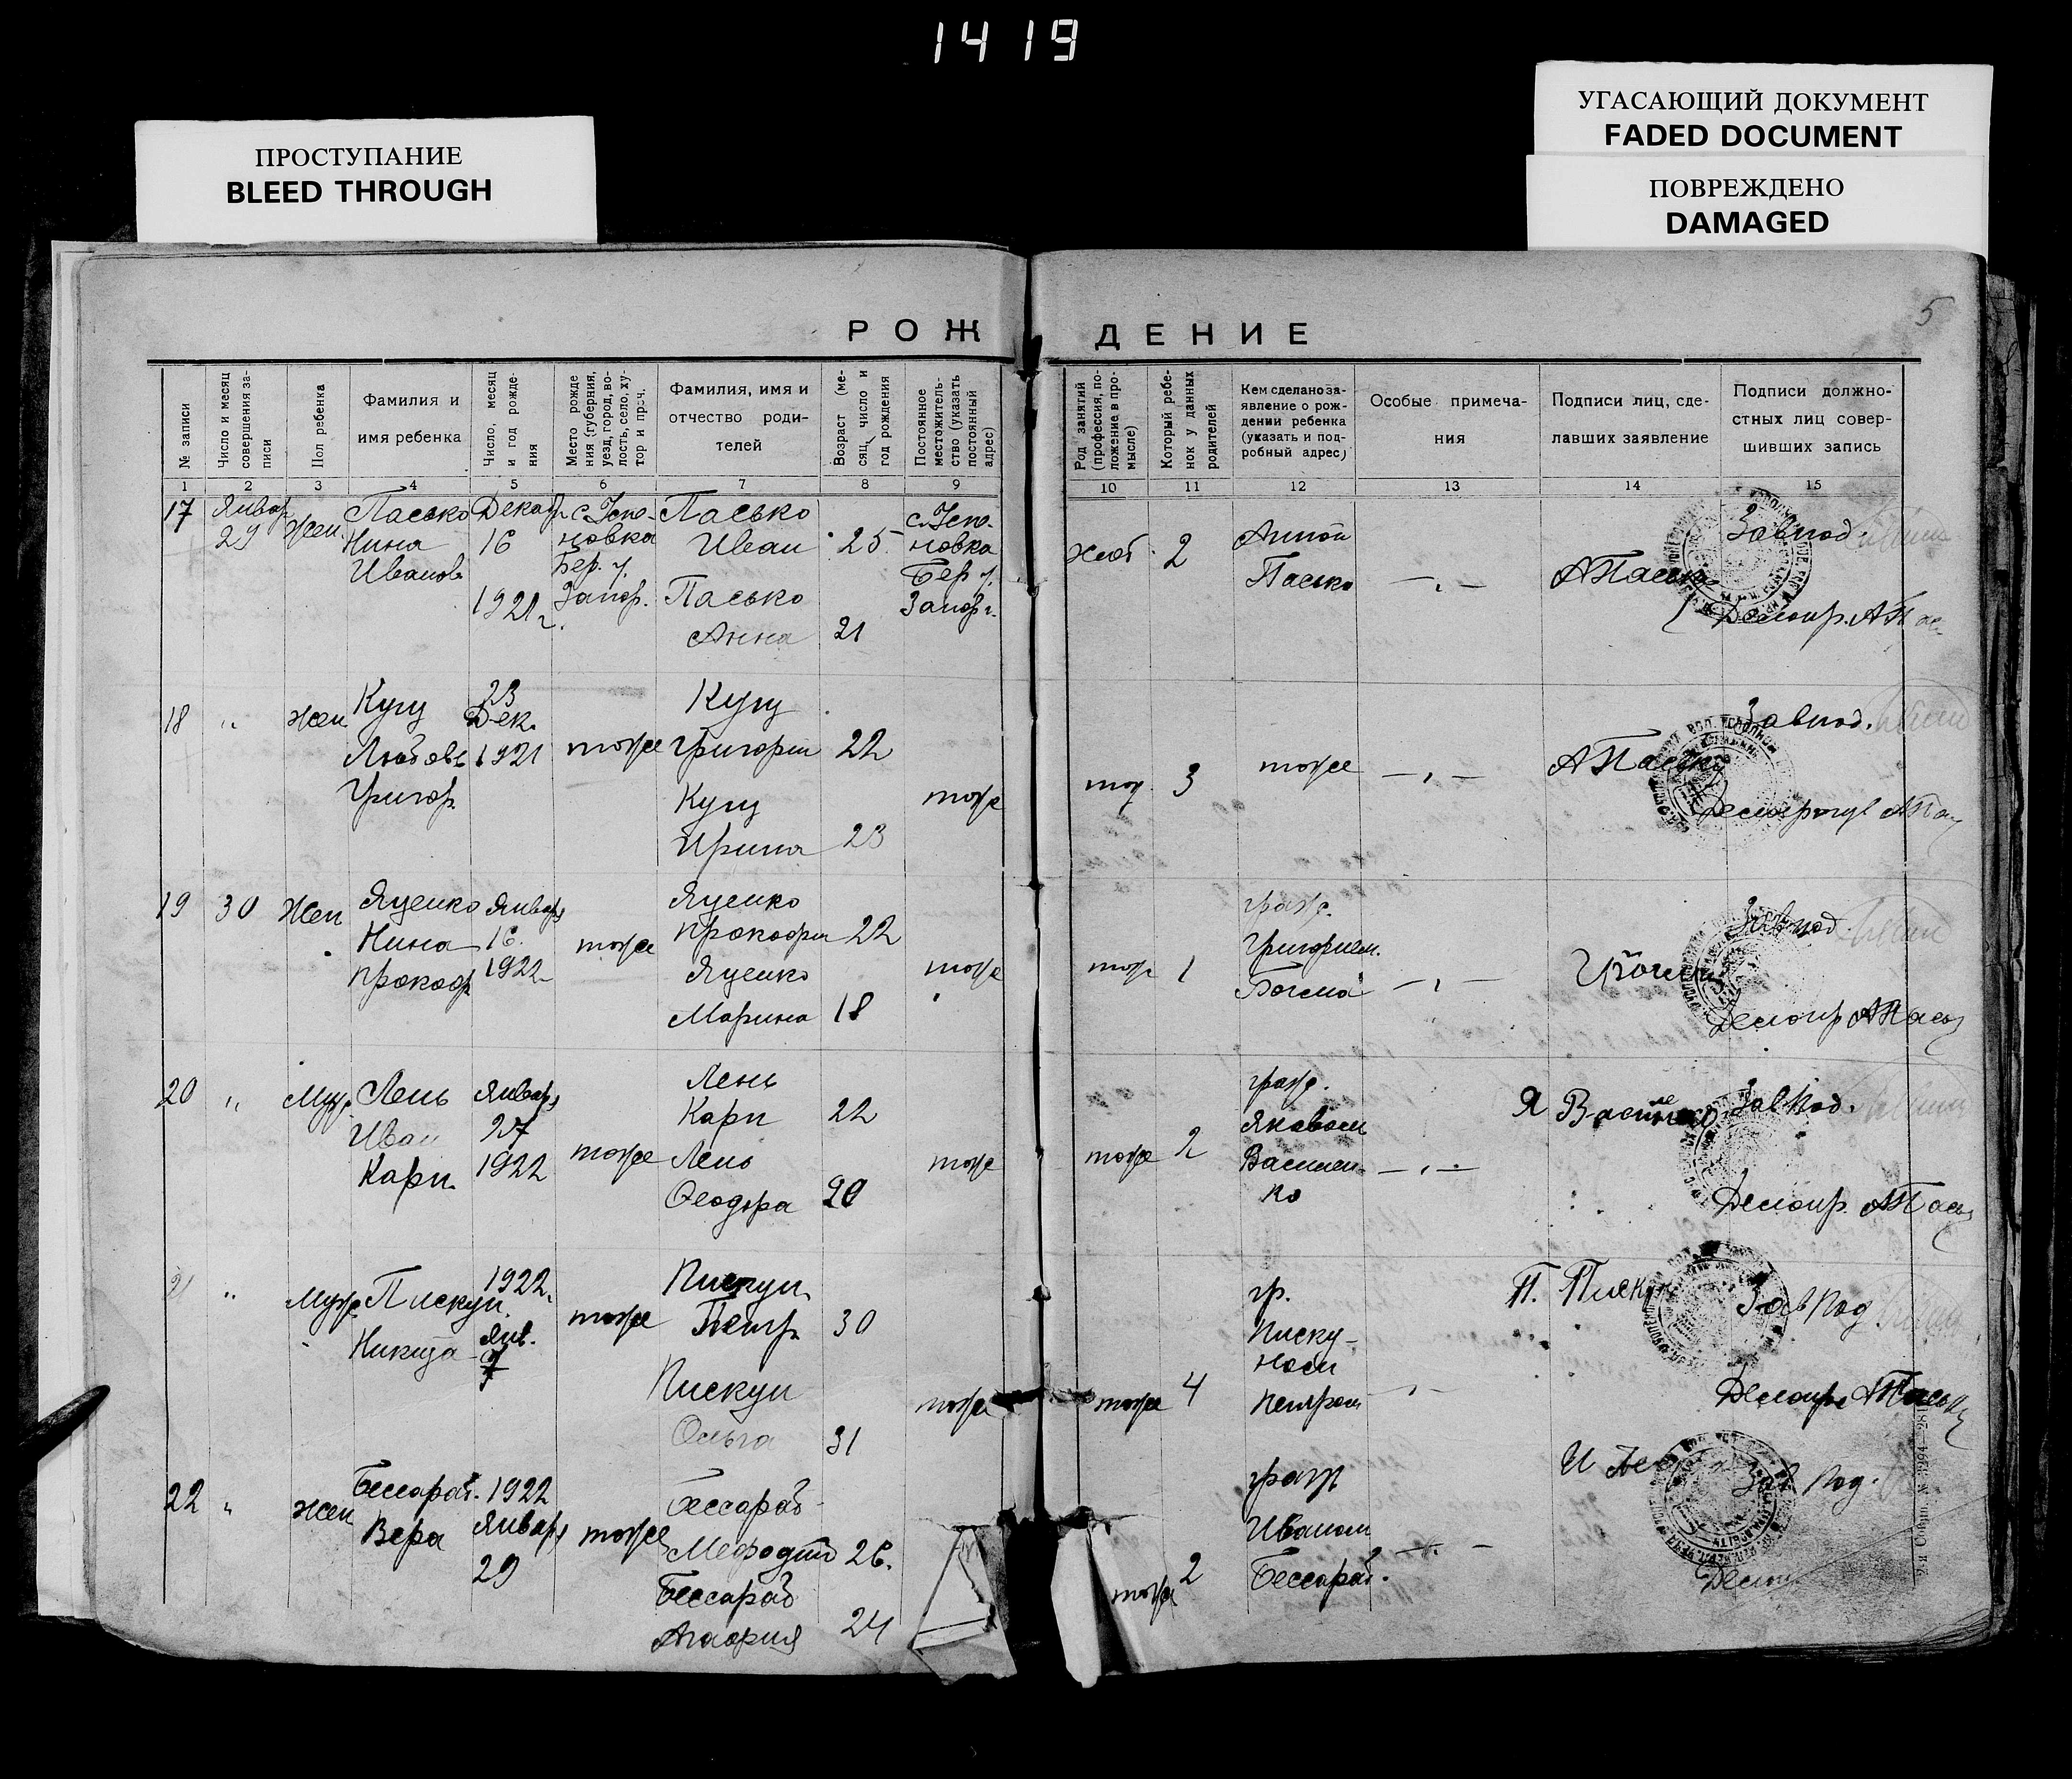 1419
ПРОСТУПАНИЕ
BLEED THROUGH
УГАСАЮЩИЙ ДОКУМЕНТ
FADED DOCUMENT
ПОВРЕЖДЕНО
DAMAGED
5
РОЖДЕНИЕ
№ записи
Число и месяц
совершения за-
писи
Пол ребенка
Фамилия и
имя ребенка
Число, месяц
и год рожде-
ния
Место рожде
ния (губерния,
уезд, город, во-
лость, село, ху-
тор и проч.
Фамилия, имя и
отчество роди-
телей
Возраст (ме-
сяц, число и
год рождения
Постоянное
местожитель-
ство (указать
постоянный
адрес)
Род занятий
(профессия, по-
ложение в про-
мысле)
Который ребе-
нок у данных
родителей
Кем сделано за-
явление о рож-
дении ребенка
(указать и под-
робный адрес)
Особые примеча-
ния
Подписи лиц, сде-
лавших заявление
Подписи должно-
стных лиц совер-
шивших запись
1 2 3 4 5 6 7 8 9 10 11 12 13 14 15
17
Январ
29
Жен.
Пасько
Нина
Иванов
Декаб
16
1921 г.
новка
Бер. у.
Запор.
Пасько
Иван 25
Пасько
Анна 21
новка
Бер у.
Запор г.
хлеб
2
Анной
Пасько
— „ —
АПасько
Завпод.
Делопр. АПас
18
„
Жен
Любовь
Григор.
23
Дек.
1921
тоже
Григорий 22
Ирина 23
тоже
тож.
3
тоже
— „ —
АПасько
Завпод.
19
30
Жен
Яценко
Нина
Прокоф
Январ
16.
1922
тоже
Яценко
Прокофий 22
Яценко
Марина 18
тоже
тож
1
граж.
Григорием
— „ —
Завпод.
Делопр АПась
20
„
Муж
Лень
Иван
Карп.
Январ
27
1922
тоже
Лень
Карп 22
Лень
Феодора 20
тоже
тоже
2
граж.
Яковом
Василен-
ко
— „ —
Я Василенко
Завпод.
Делопр. АПась
21
„
Муж.
Пискун.
Никита
1922
Янв.
7
тоже
Пискун
Петр 30
Пискун
Ольга 31
тоже
тоже
4
гр.
Писку-
ном
Петром
— „ —
П. Писку
Зав Под
Делопр АПаськ
22
„
Жен
Бессараб.
Вера
1922
Январ
29
тоже
Бессараб
Мефодий 26.
Бессараб
Агафия 24
тоже
2
граж
Иваном
Бессараб.
— „ —
И Бес
Зав Под.
Делоп